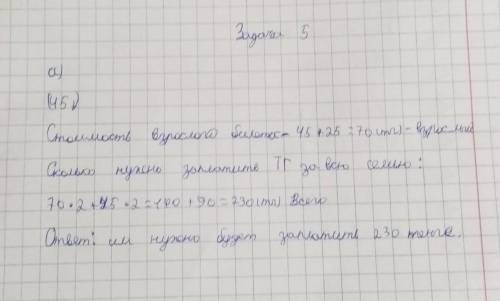 Задача 5
а)
(45)
Стоимость взрослого билета - 45 + 25 = 70 (тг) - взрослый
Сколько нужно заплатить ТГ за всю семью:
70 • 2 + 45 • 2 = 140 + 90 = 230 (тг) Всего
Ответ: им нужно будет заплатить 230 тенге.